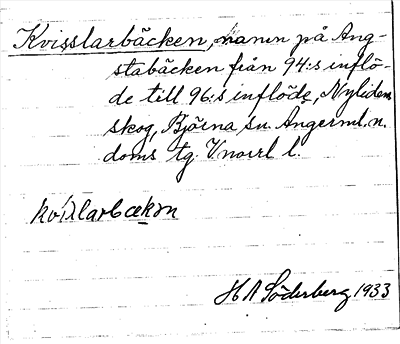 Kvisslarbäcken, namn på Ang-
stabäcken från 94:s inflö-
de till 96:s inflöde, Nyliden
skog, Björna sn. Ångerml. n.
doms tg. Vnorrl l.
H A Söderberg 1933